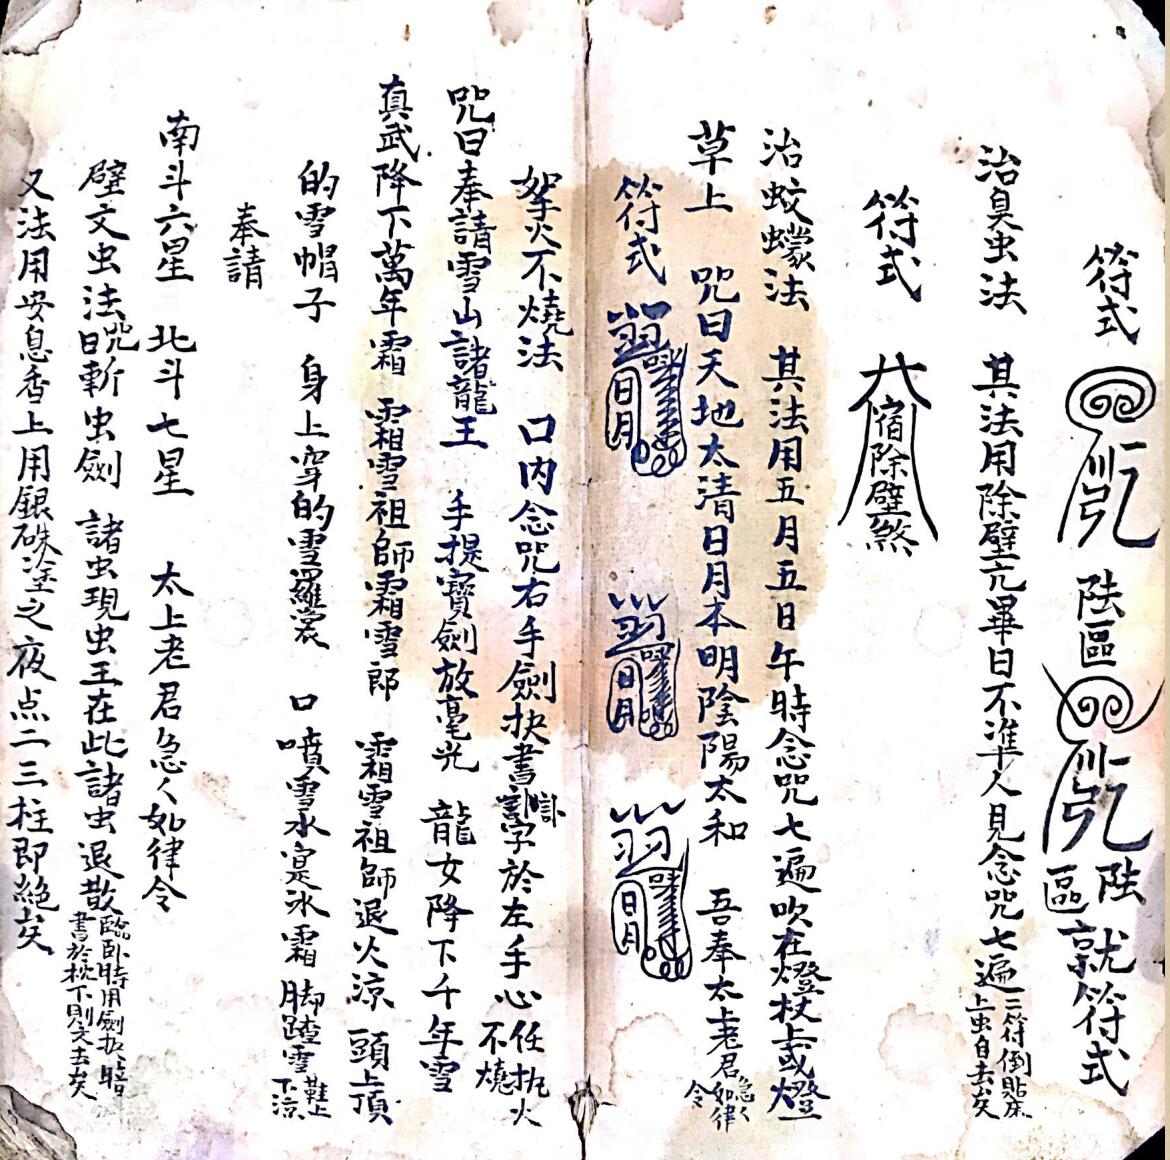 符式 陆區 陆區 就符式
治臭虫法 其法用除壁亢畢日不準人見念咒七遍 二符倒貼床上虫自去矣
符式 宿除壁煞
治蚊蠓法 其法用五月五日午時念咒七遍吹在燈杖上或燈
草上 咒曰天地太清日月本明陰陽太和 吾奉太上老君急々如律令
符式 日月 日月 日月
拏火不燒法 口内念咒右手劍抉書字於左手心 任扎火不燒
咒曰奉請雪山諸龍王 手提寶劍放毫光 龍女降下千年雪
真武降下萬年霜 霜雪祖師霜雪郎 霜雪祖師退火涼 頭上頂
的雪帽子 身上穿的雪羅裳 口噴雪水寔冰霜 脚蹅雪鞋上下涼
奉請
南斗六星 北斗七星 太上老君急々如律令
壁文虫法 咒曰斬虫劍 諸虫現虫王在此諸虫退散 臨卧時用劍抉暗書於枕下則文去矣
又法用安息香上用銀硃塗之夜点二三柱即絶矣